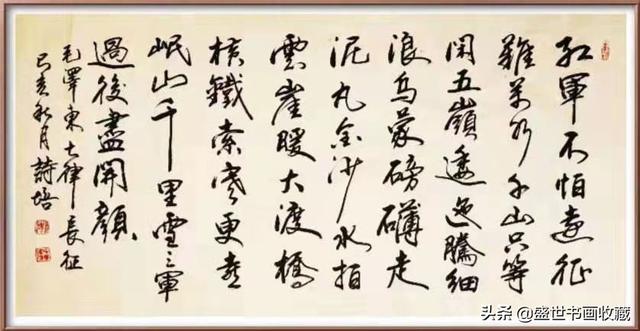 红軍不怕遠征
難萬水千山只等
闲五嶺逶迤騰細
浪烏蒙磅礴走
泥丸金沙水拍
雲崖暖大渡橋
横鐵索寒更喜
岷山千里雪三軍
過後盡開顔
毛澤東七律長征
己亥秋月詩培
头条 @盛世书画收藏